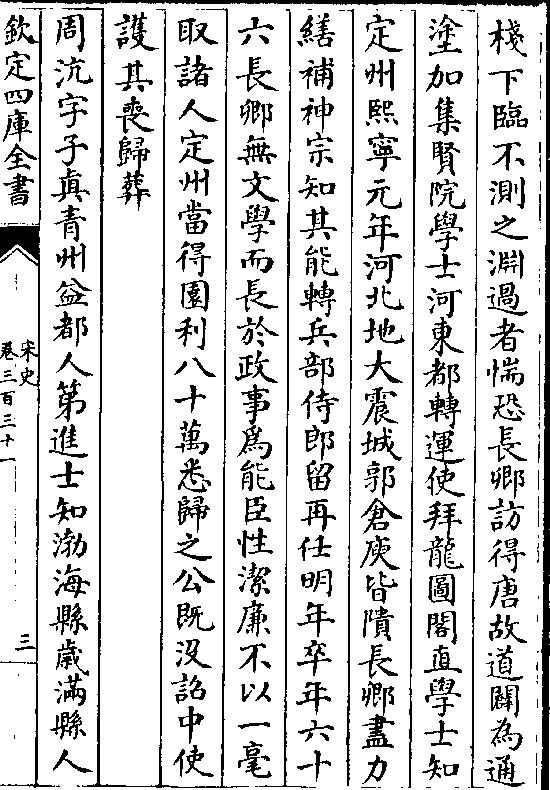 棧下臨不測之淵過者惴恐長卿訪得唐故道闢為通
塗加集賢院學士河東都轉運使拜龍圖閣直學士知
定州熙寧元年河北地大震城郭倉庾皆隤長卿盡力
繕補神宗知其能轉兵部侍郎留再任明年卒年六十
六長卿無文學而長於政事為能臣性潔廉不以一毫
取諸人定州當得園利八十萬悉歸之公既沒詔中使
護其喪歸葬
周沆字子真青州益都人第進士知渤海縣歲滿縣人
欽定四庫全書
宋史
卷三百三十一
三